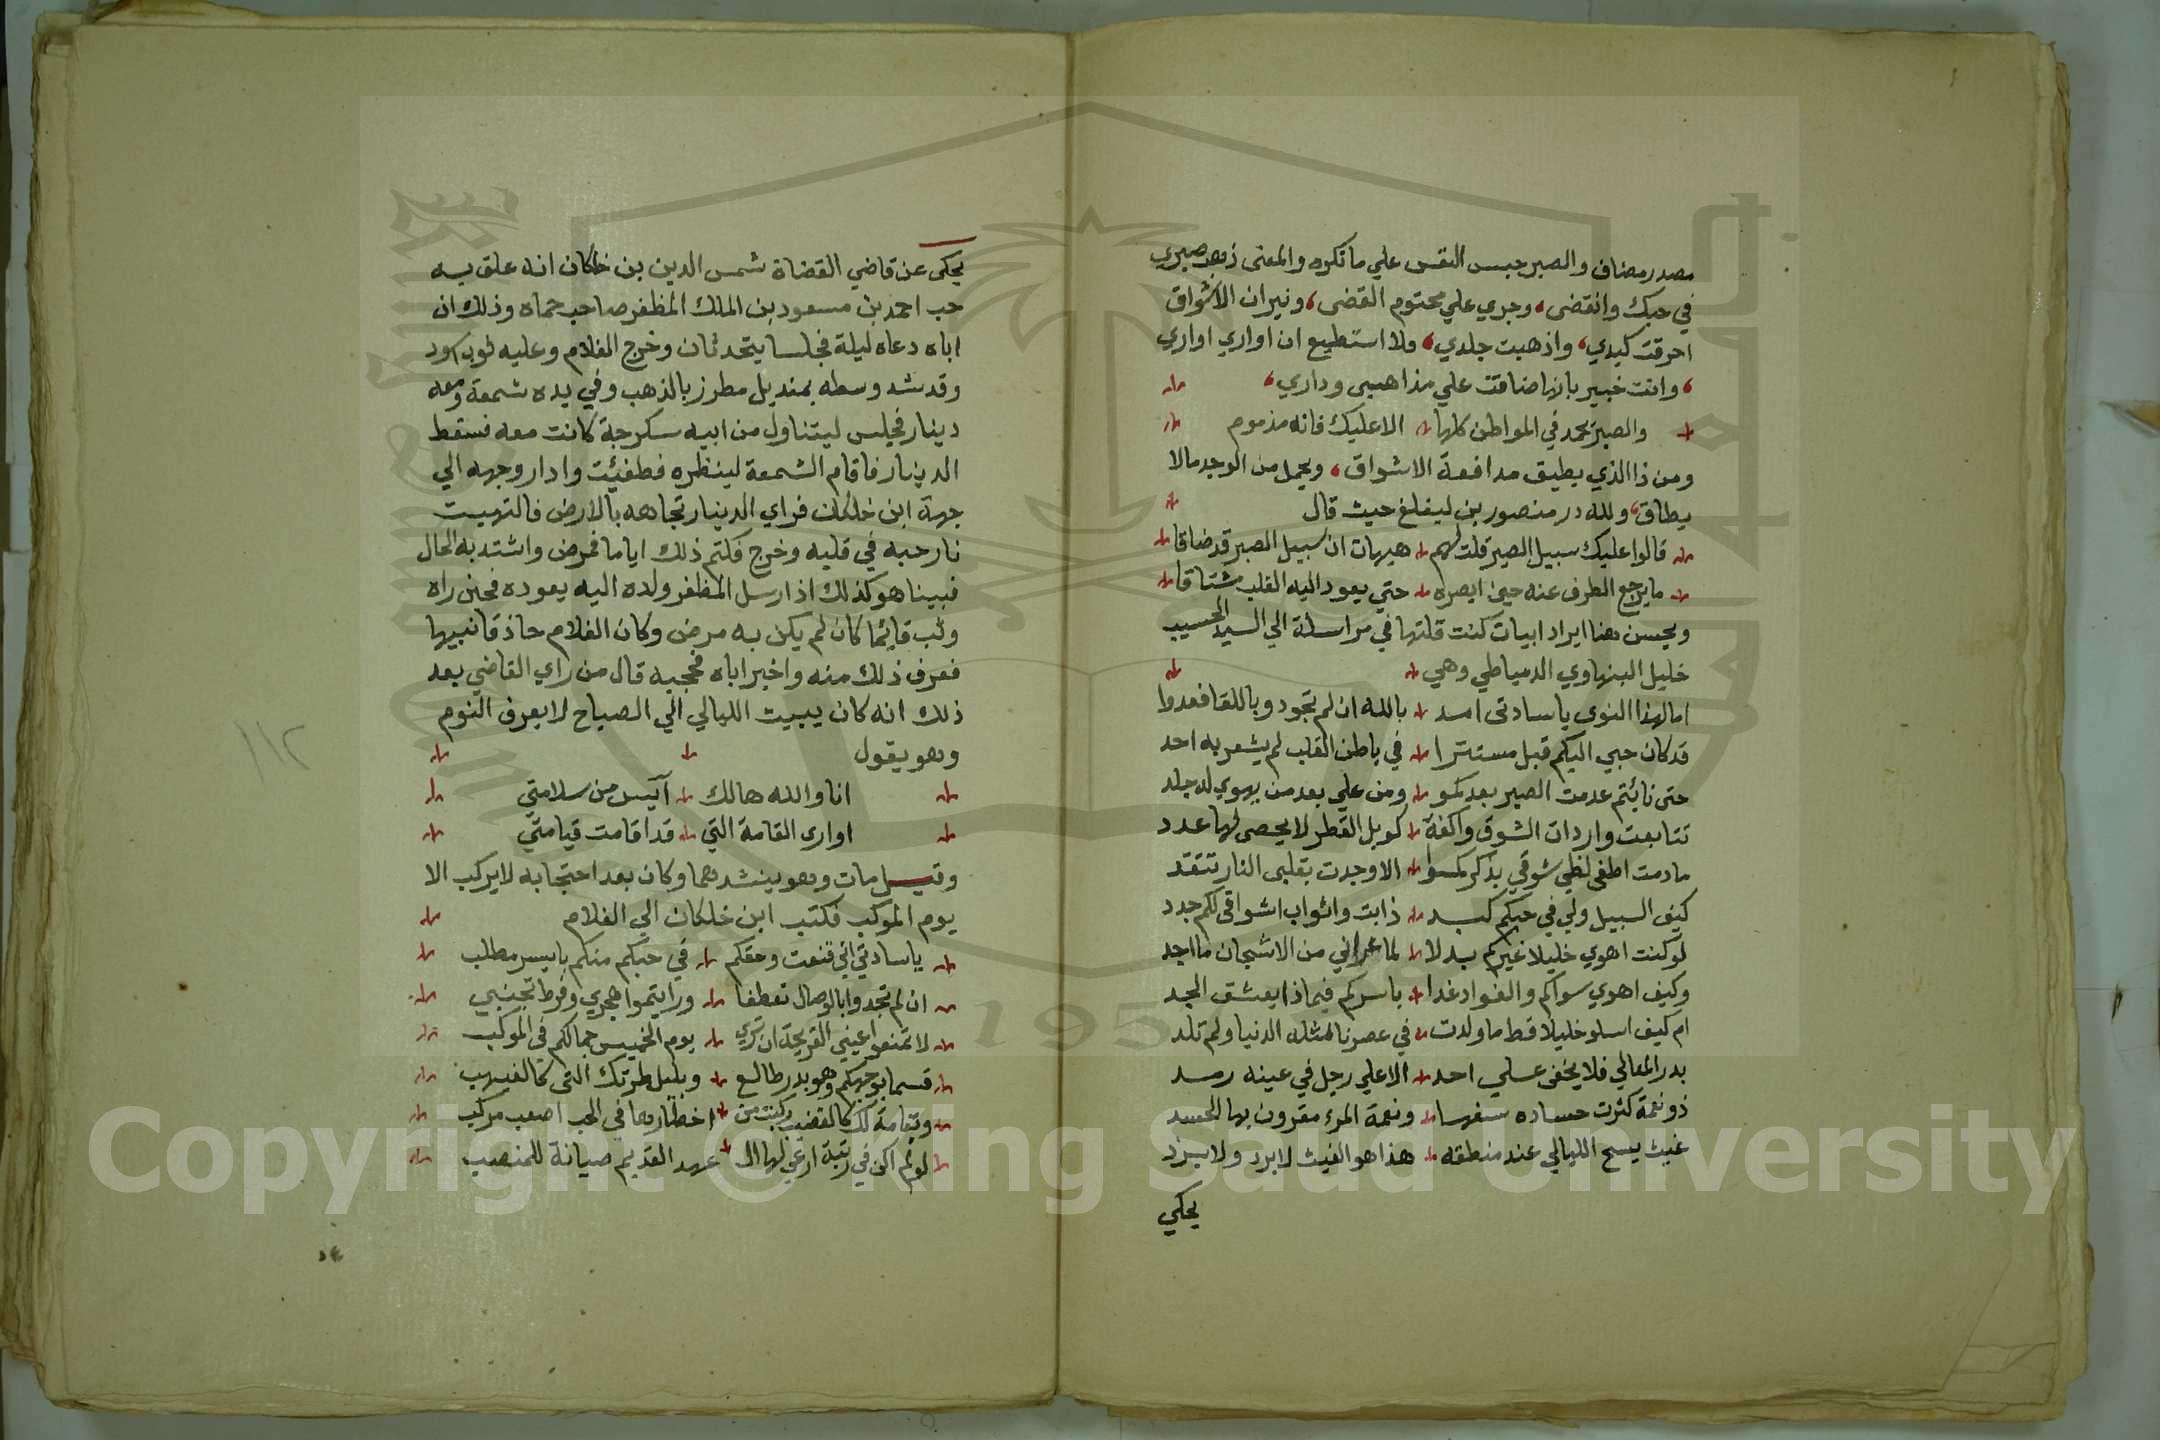 مصدر مضاف والصبر حبس النفس علي ما تكره والمعنى ذهب صبري
في حبك وانقضى، وجري علي محتوم القضى، ونيران الاشواق
احرقت كبدي، واذهبت جلدي، ولا استطيع ان اواري اواري
، وانت خبير بانها ضاقت علي مذاهبي وداري،
والصبر يحمد في المواطن كلها الا عليك فانه مذموم
ومن ذا الذي يطيق مدافعة الاشواق، ويحمل من الوجد مالا
يطاق، ولله در منصور بن ليغلغ حيث قال
قالوا عليك سبيل الصبر قلت لهم هيهات ان سبيل الصبر قد ضاقا
ما يرجع الطرف عنه حين ابصره حتي يعود اليه القلب مشتاقا
ويحسن هنا ايراد ابيات كنت قلتها في مراسلة الي السيد الحسيب
خليل البنهاوي الدمياطي وهي
اما لهذا النوي يا سادتى امد بالله ان لم تجودوا باللقا فعدوا
قد كان حبي اليكم قبل مستترا في باطن القلب لم يشعر به احد
حتى نايتم عدمت الصبر بعدكمو ومن علي بعد من يهوي له جلد
تتابعت واردات الشوق واكفة كوبل القطر لا يحصى لها عدد
ما دمت اطفي لظي شوقي بذكركمو الا وجدت بقلبى النار تتقد
كيف السبيل ولي في حبكم كبد ذابت واثواب اشواقى لكم جدد
لو كنت اهوي خليلا غيركم بدلا لما عراني من الاشجان ما اجد
وكيف اهوي سواكم والفواد غدا باسركم فبماذا يعشق الجسد
ام كيف اسلو خليلا قط ما ولدت في عصرنا لمثله الدنيا ولم تلد
بدر المعالي فلا يخفى علي احد الا علي رجل في عينه رمد
ذو نعمة كثرت حساده سفها ونعمة المرء مقرون بها الحسد
غيث يسح الليالي عند منطقه هذا هو الغيث لا برد ولا برد
يحكي
يحكى عن قاضي القضاة شمس الدين بن خلكان انه علق به
حب احمد بن مسعود بن الملك المظفر صاحب حماه وذلك ان
اباه دعاه ليلة فجلسا يتحدثان وخرج الغلام وعليه ثوب اسود
وقد شد وسطه بمنديل مطرز بالذهب وفي يده شمعة ومعه
دينار فجلس ليتناول من ابيه سكرجة كانت معه فسقط
الدينار فاقام الشمعة لينظره فطفئت وادار وجهه الي
جهة ابن خلكان فراي الدينار تجاهه بالارض فالتهبت
نار حبه في قلبه وخرج فكتم ذلك اياما فمرض واشتد به الحال
فبينا هو كذلك اذ ارسل المظفر ولده اليه يعوده فحين راه
وثب قائما كان لم يكن به مرض وكان الغلام حاذقا نبيها
فعرف ذلك منه واخبر اباه فحجبه قال من راي القاضي بعد
ذلك انه كان يبيت الليالي الي الصباح لا يعرف النوم
وهو يقول
انا والله هالك آيس من سلامتي
او ارى القامة التي قد اقامت قيامتي
وقيل مات وهو ينشدهما وكان بعد احتجابه لا يركب الا
يوم الموكب فكتب ابن خلكان الي الغلام
يا سادتي اني قنعت وحقكم في حبكم منكم بايسر مطلب
ان لم تجدوا بالوصال تعطفا ورايتموا هجري وفرط تجنبي
لا تمنعوا عيني القريحة ان تري يوم الخميس جمالكم في الموكب
قسما بوجهكم وهو بدر طالع وبليل طرتك التي كالغيهب
وبقامة لك كالقضيب ركبت من اخطارها في الحب اصعب مركب
لو لم اكن في رتبة ارعي لها ال عهد القديم صيانة للمنصب
١١٢
Copyright © King Saud University